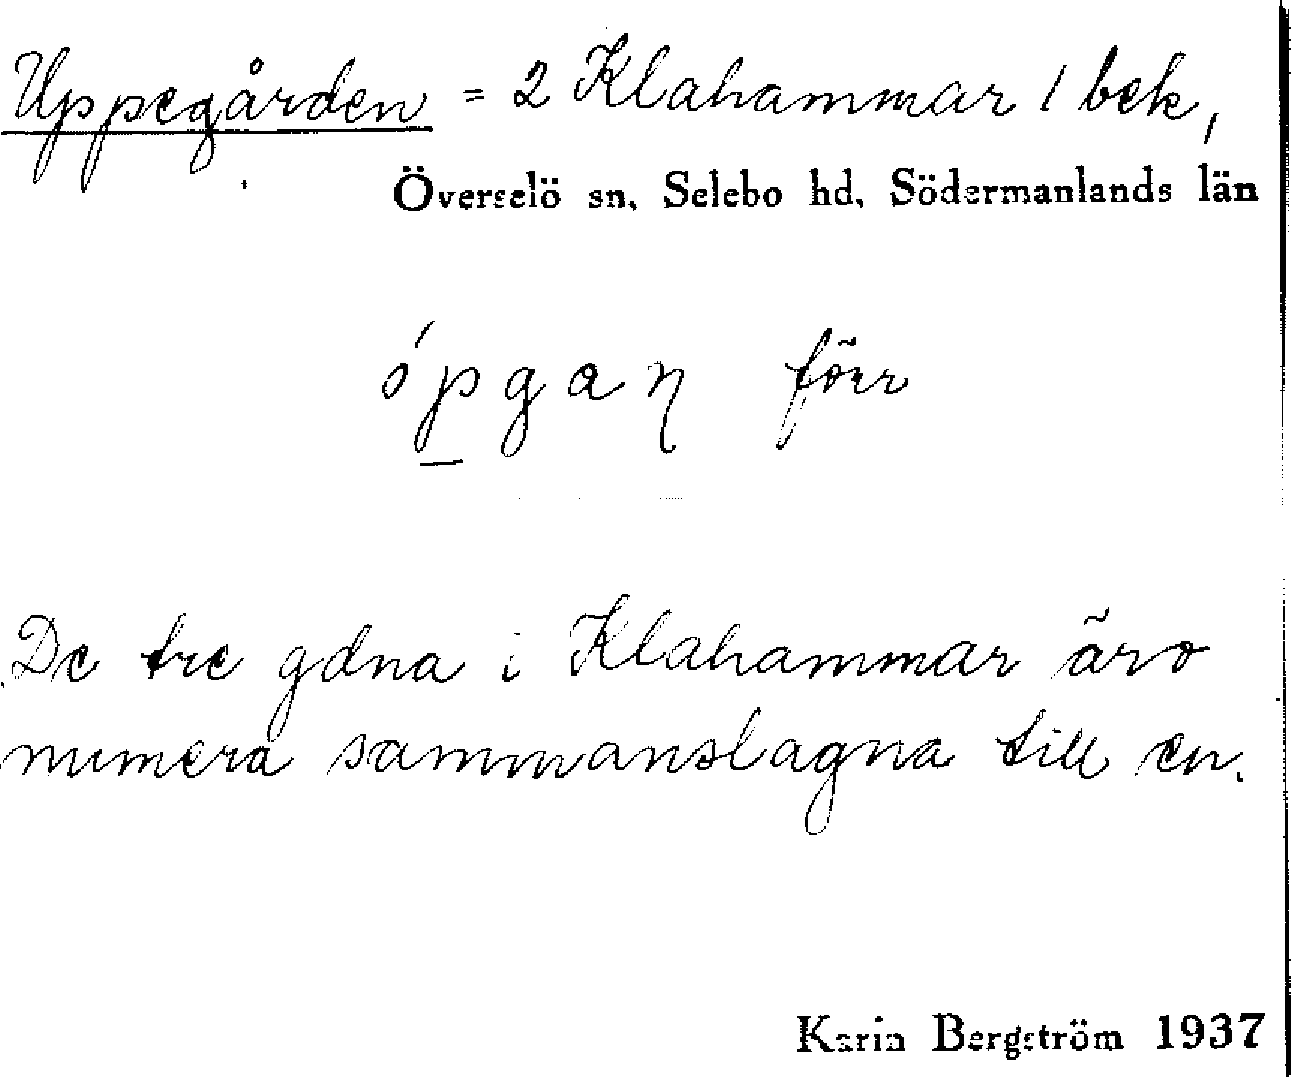 Uppegården = 2 Klahammar / bek,
Överselö sn. Selebo hd. Södermanlands län
ópgaη förr
De tre gdna i Klahammar äro
numera sammanslagna till en.
Karin Bergström 1937